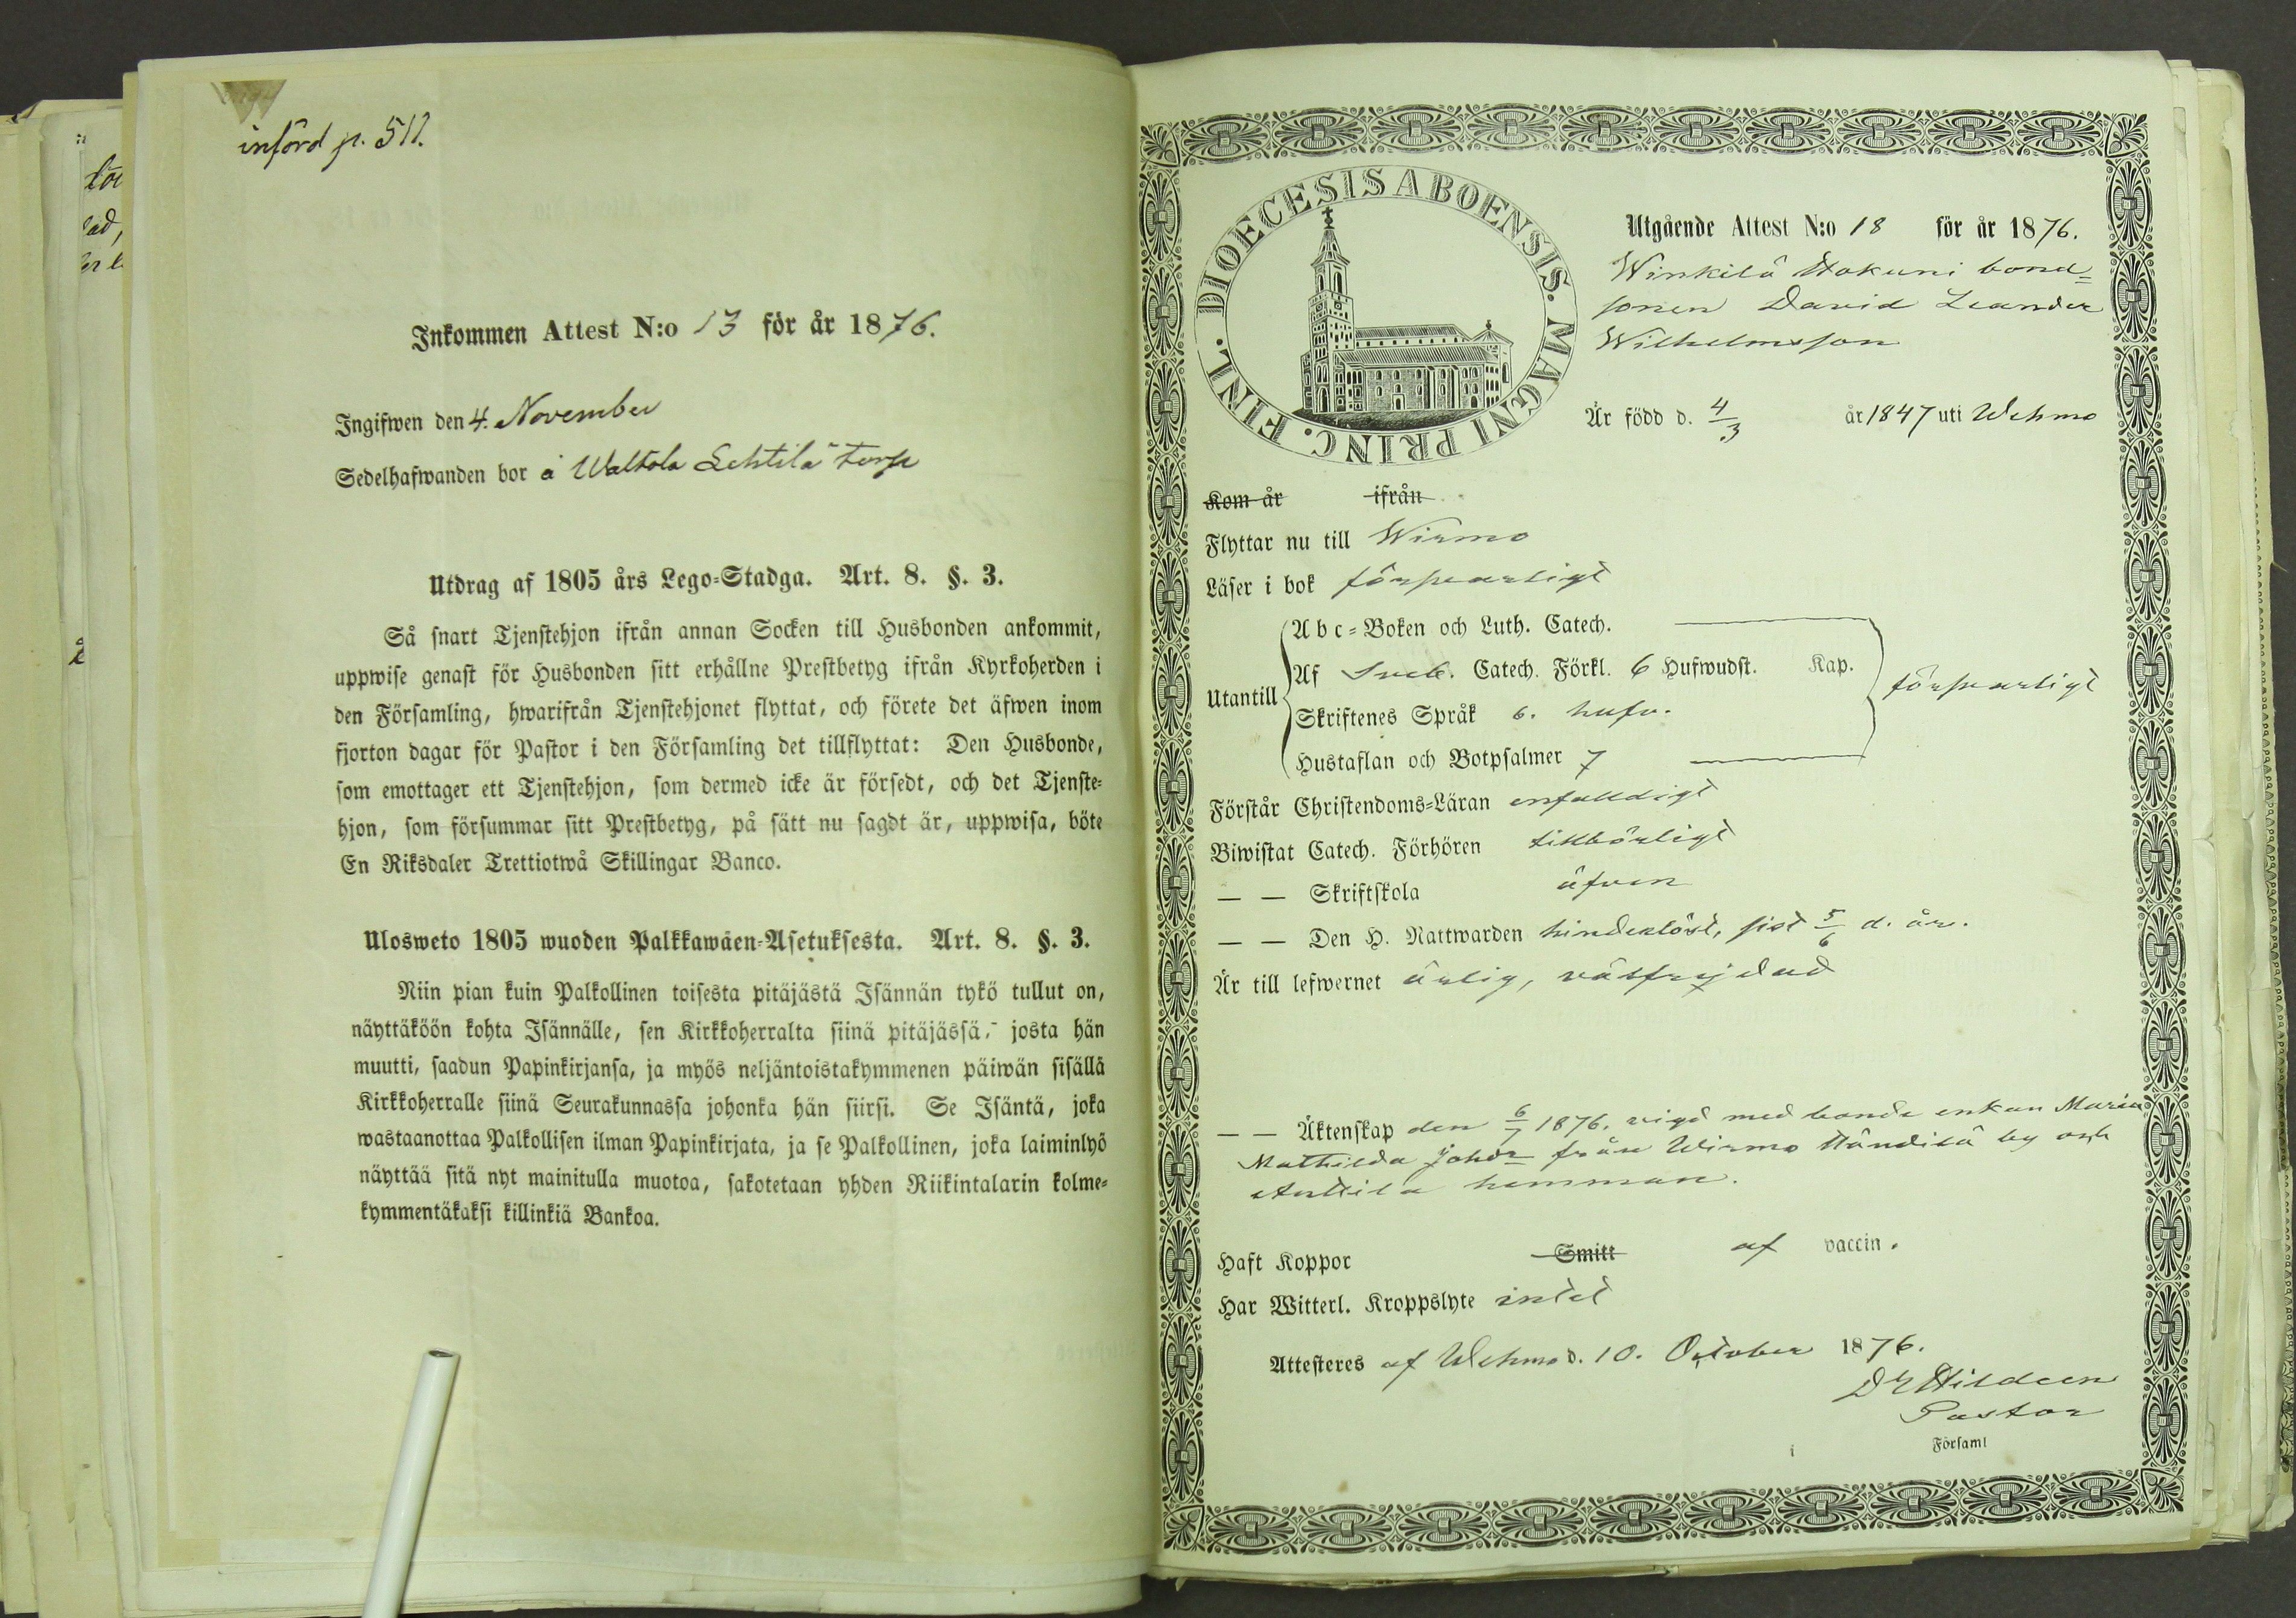 införd p. 511.
Inkommen Attest N:o 13 för år 1876.
Ingifwen den 4. November
Sedelhafwanden bor å Waltola Lehtilä torp
Utdrag af 1805 års Lego-Stadga. Art. 8. §. 3.
Så snart Tjenstehjon ifrån annan Socken till Husbonden ankommit,
uppwise genast för Husbonden sitt erhållne Prestbetyg ifrån Kyrkoherden i
den Församling, hwarifrån Tjenstehjonet flyttat, och förete det äfwen inom
fjorton dagar för Pastor i den Församling det tillflyttat: Den Husbonde,
som emottager ett Tjenstehjon, som dermed icke är försedt, och det Tjenste-
hjon, som försummar sitt Prestbetyg, på sätt nu sagdt är, uppwisa, böte
En Riksdaler Trettiotwå Skillingar Banco.
Ulosweto 1805 wuoden Palkkawäen-Asetuksesta. Art. 8. §. 3.
Niin pian kuin Palkollinen toisesta pitäjästä Isännän tykö tullut on,
näyttäköön kohta Isännälle, sen Kirkkoherralta siinä pitäjässä, josta hän
muutti, saadun Papinkirjansa, ja myös neljäntoistakymmenen päiwän sisällä
Kirkkoherralle siinä Seurakunnassa johonka hän siirsi. Se Isäntä, joka
wastaanottaa Palkollisen ilman Papinkirjata, ja se Palkollinen, joka laiminlyö
näyttää sitä nyt mainitulla muotoa, sakotetaan yhden Riikintalarin kolme-
kymmentäkaksi killinkiä Bankoa.
DIOECESIS ABOENSIS. MAGNI PRINC. FINL.
Utgående Attest N:o 18 för år 1876.
Winkilä Hakuni bond-
sonen David Leander
Wilhelmsson
Är född d. 4/3 år 1847 uti Wehmo
Kom år ifrån
Flyttar nu till Wirmo
Läser i bok försvarligt
Abc-Boken och Luth. Catech.
Utantill Af Sveb. Catech. Förkl. 6 Hufwudst. Kap. försvarligt
Skriftenes Språk 6. hufv.
Hustaflan och Botpsalmer 7
Förstår Christendoms-Läran enfaldigt
Biwistat Catech. Förhören tillbörligt
— — Skriftskola äfven
— — Den H. Nattwarden hinderlöst, sist 5/6 d. år.
Är till lefwernet ärlig, välfrejdad
— — Äktenskap den 6/7 1876. vigd med bonde enkan Maria
Mathilda Johdr från Wirmo Händilä by och
Anttila hemman.
Haft Koppor Smitt af vaccin.
Har Witterl. Kroppslyte intet
Attesteres af Wehmo d. 10. October 1876.
D E Hildeen
Pastor
i Församl